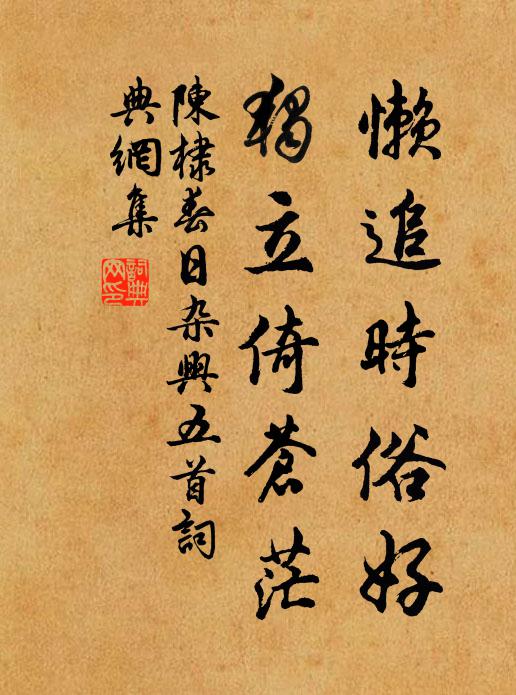 懶追時俗好
獨立倚蒼茫
陳棣春日杂興五首詞
典網集
詞典
网印